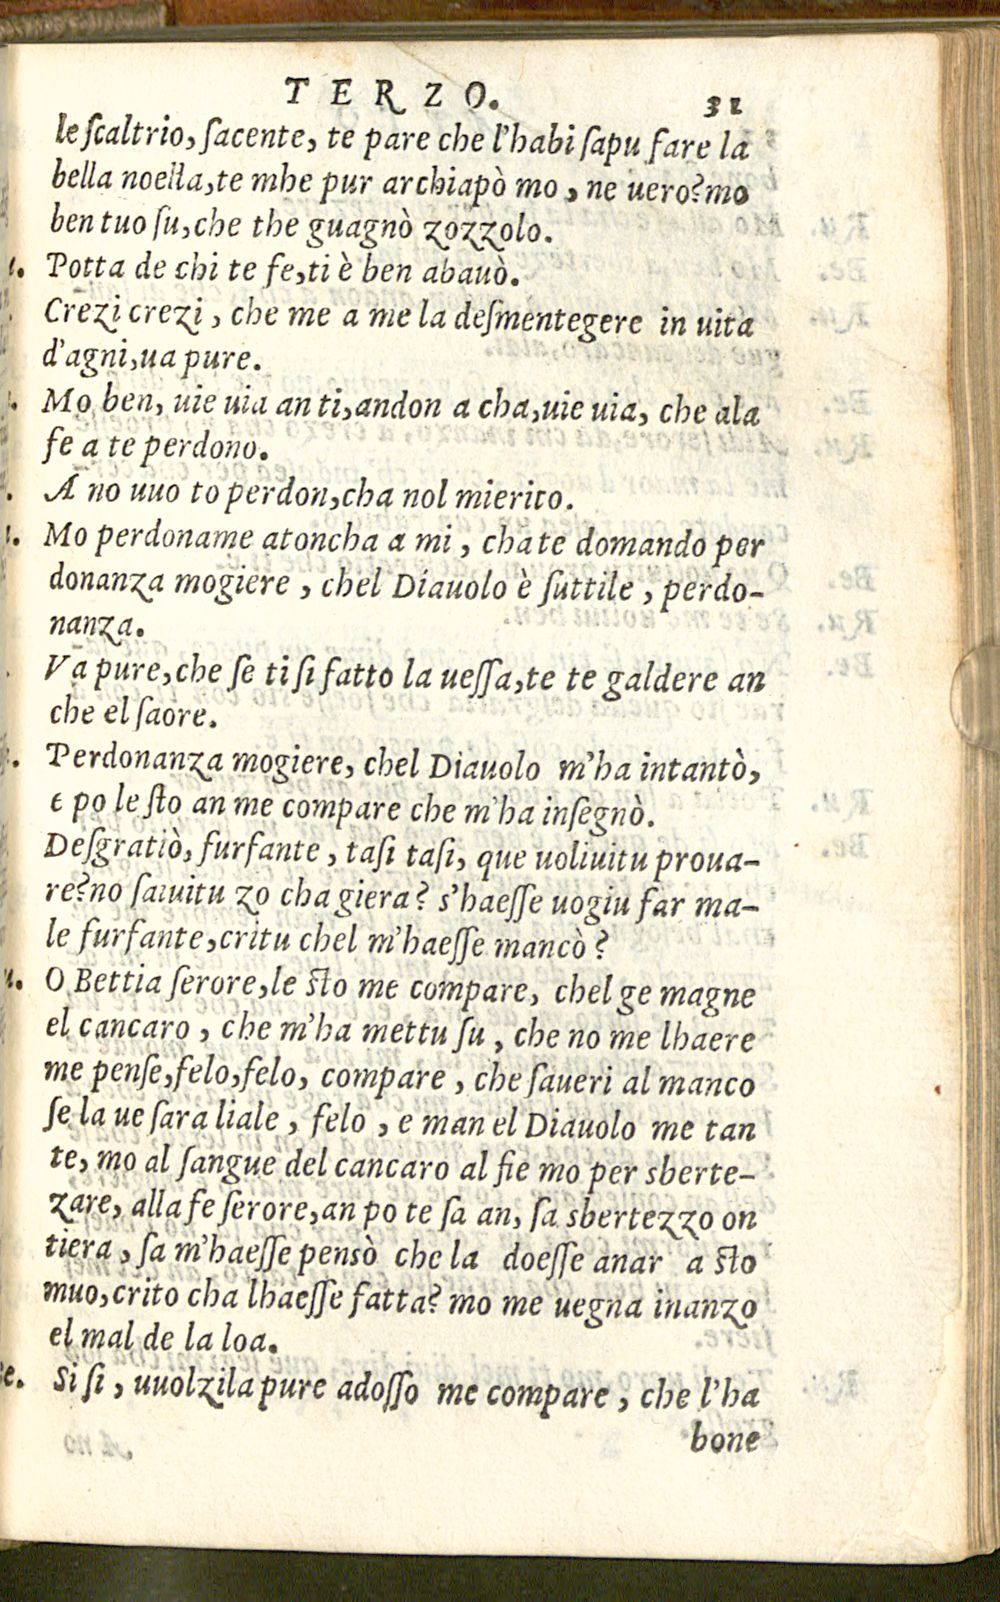 TERZO. 31
le ſcaltrio, ſacente, te pare che l'habi ſapu fare la
bella noella, te mhe pur archiapò mo, ne uero? mo
ben tuo ſu, che the guagnò zozzolo.
e. Potta de chi te fe, ti è ben abauò.
Crezi crezi, che me a me la deſmentegere in uita
d'agni, ua pure.
Mo ben, uie uia an ti, andon a cha, uie uia, che ala
fe a te perdono.
A no uuo to perdon, cha nol mierito.
Mo perdoname atoncha a mi, cha te domando per
donanza mogiere, chel Diauolo è ſuttile, perdo-
nanza.
Va pure, che ſe ti ſi fatto la ueſſa, te te galdere an
che el ſaore.
Perdonanza mogiere, chel Diauolo m'ha intantò,
e po le ſto an me compare che m'ha inſegnò.
Deſgratiò, furfante, taſi taſi, que uoliuitu proua-
re? no ſaiuitu zo cha giera? s'haeſſe uogiu far ma-
le furfante, critu chel m'haeſſe mancò?
u. O Bettia ſerore, le ſto me compare, chel ge magne
el cancaro, che m'ha mettu ſu, che no me lhaere
me penſe, felo, felo, compare, che ſaueri al manco
ſe la ue ſara liale, felo, e man el Diauolo me tan
te, mo al ſangue del cancaro al fie mo per sberte-
zare, alla fe ſerore, an po te ſa an, ſa sbertezzo on
tiera, ſa m'haeſſe pensò che la doeſſe anar a ſto
muo, crito cha lhaeſſe fatta? mo me uegna inanzo
el mal de la loa.
e. Si ſi, uuolzila pure adoſſo me compare, che l'ha
bone